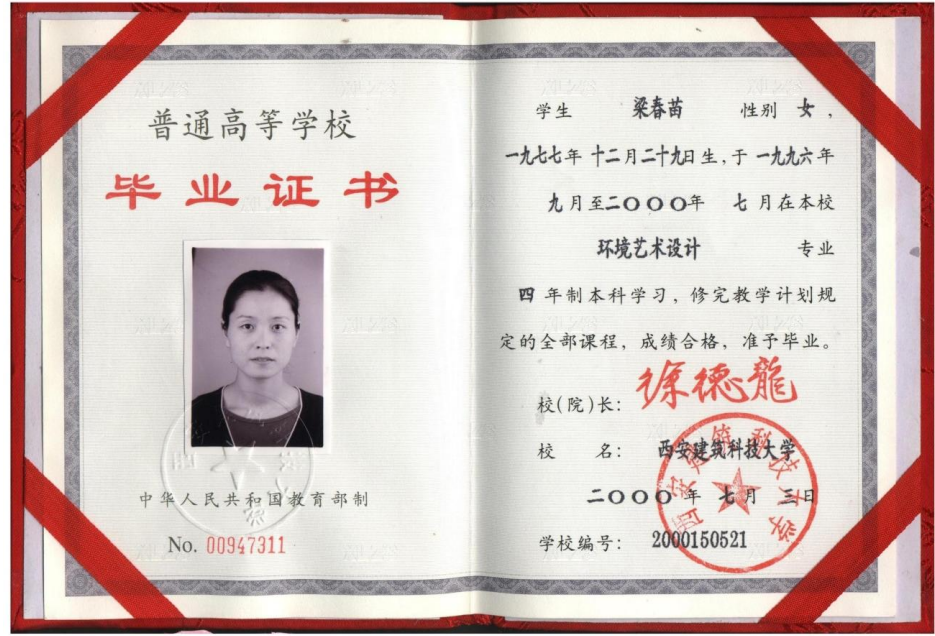 普通高等学校
毕业证书
中华人民共和国教育部制
No. 00947311
学生 梁春苗 性别 女，
一九七七年 十二月二十九日生，于 一九九六年
九月至二〇〇〇年 七月在本校
环境艺术设计 专业
四 年制本科学习，修完教学计划规
定的全部课程，成绩合格，准予毕业。
校(院)长： 徐德龍
校 名： 西安建筑科技大学
二〇〇〇年 七月 三日
学校编号： 2000150521
西安建筑科技大学